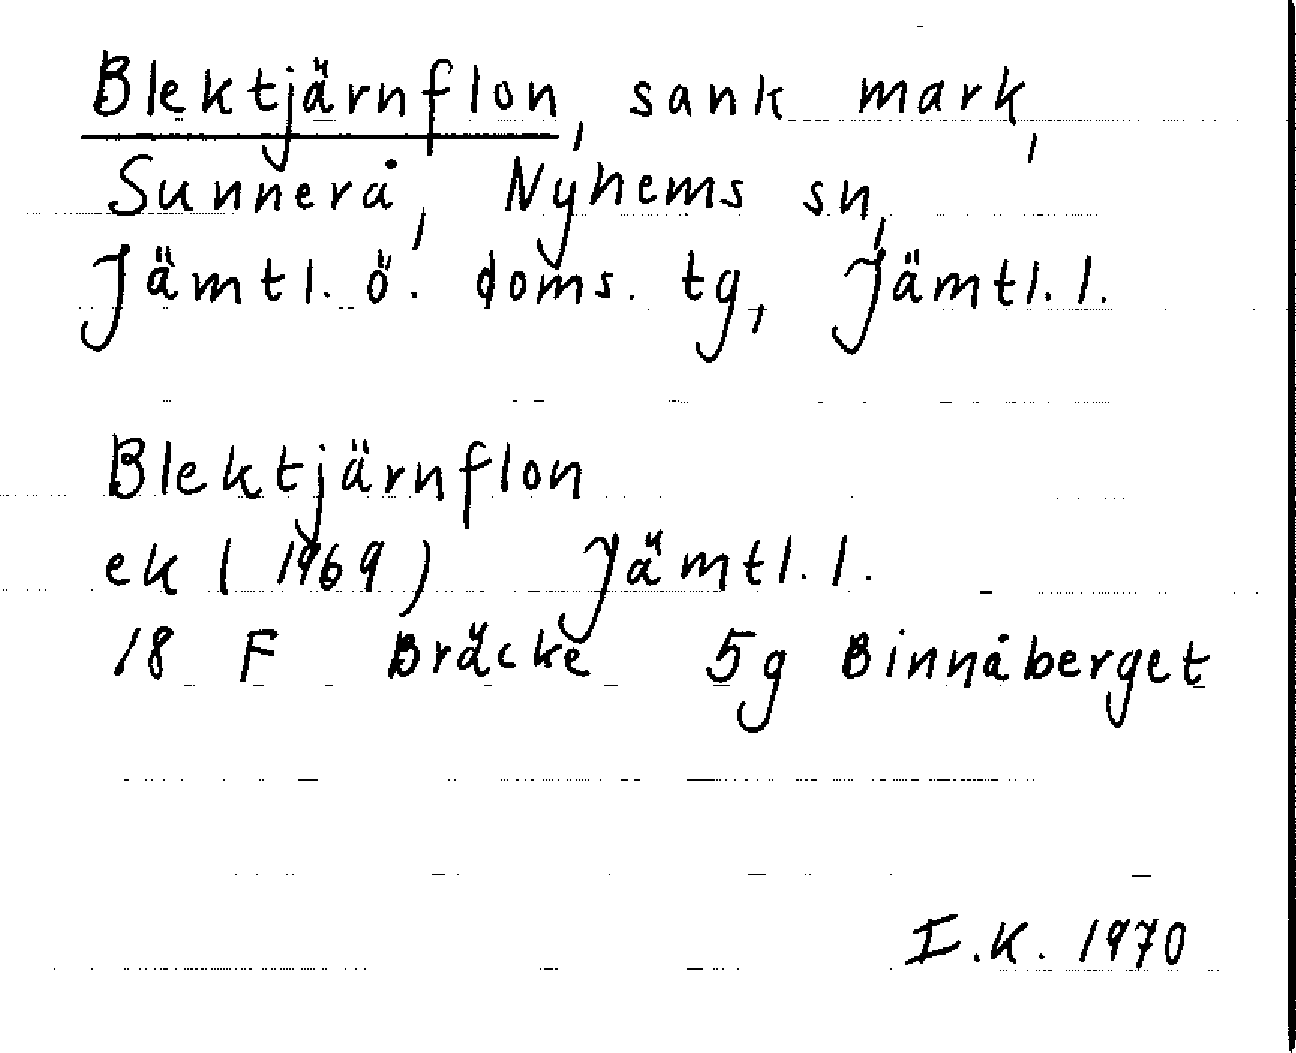 Blektjärnflon, sank mark,
Sunnerå, Nyhems sn,
Jämtl. ö. doms. tg, Jämtl. l.
Blektjärnflon
ek (1969) Jämtl. l.
18 F Bräcke 5g Binnåberget
I.K. 1970